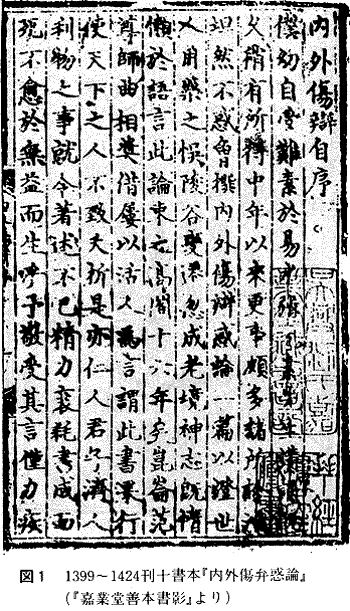 内外傷辯自序
僕幼自受難素於易水張元素先生講誦既
久稍有所得中年以來更事頗多諸所診治
坦然不惑曾撰内外傷辨惑論一篇以證世
人用藥之悞陵谷變遷忽成老境神志既惰
懶於語言此論束之高閣十六年矣崑崙范
尊師曲相奬借屢以活人為言謂此書果行
使天下之人不致夭折是亦仁人君子濟人
利物之事就令著述不已精力衰耗書成而
死不愈於無益而生乎予敬受其言僅力疾
図1 1399~1424刊十書本『内外傷弁惑論』
(『嘉業堂善本書影』より)